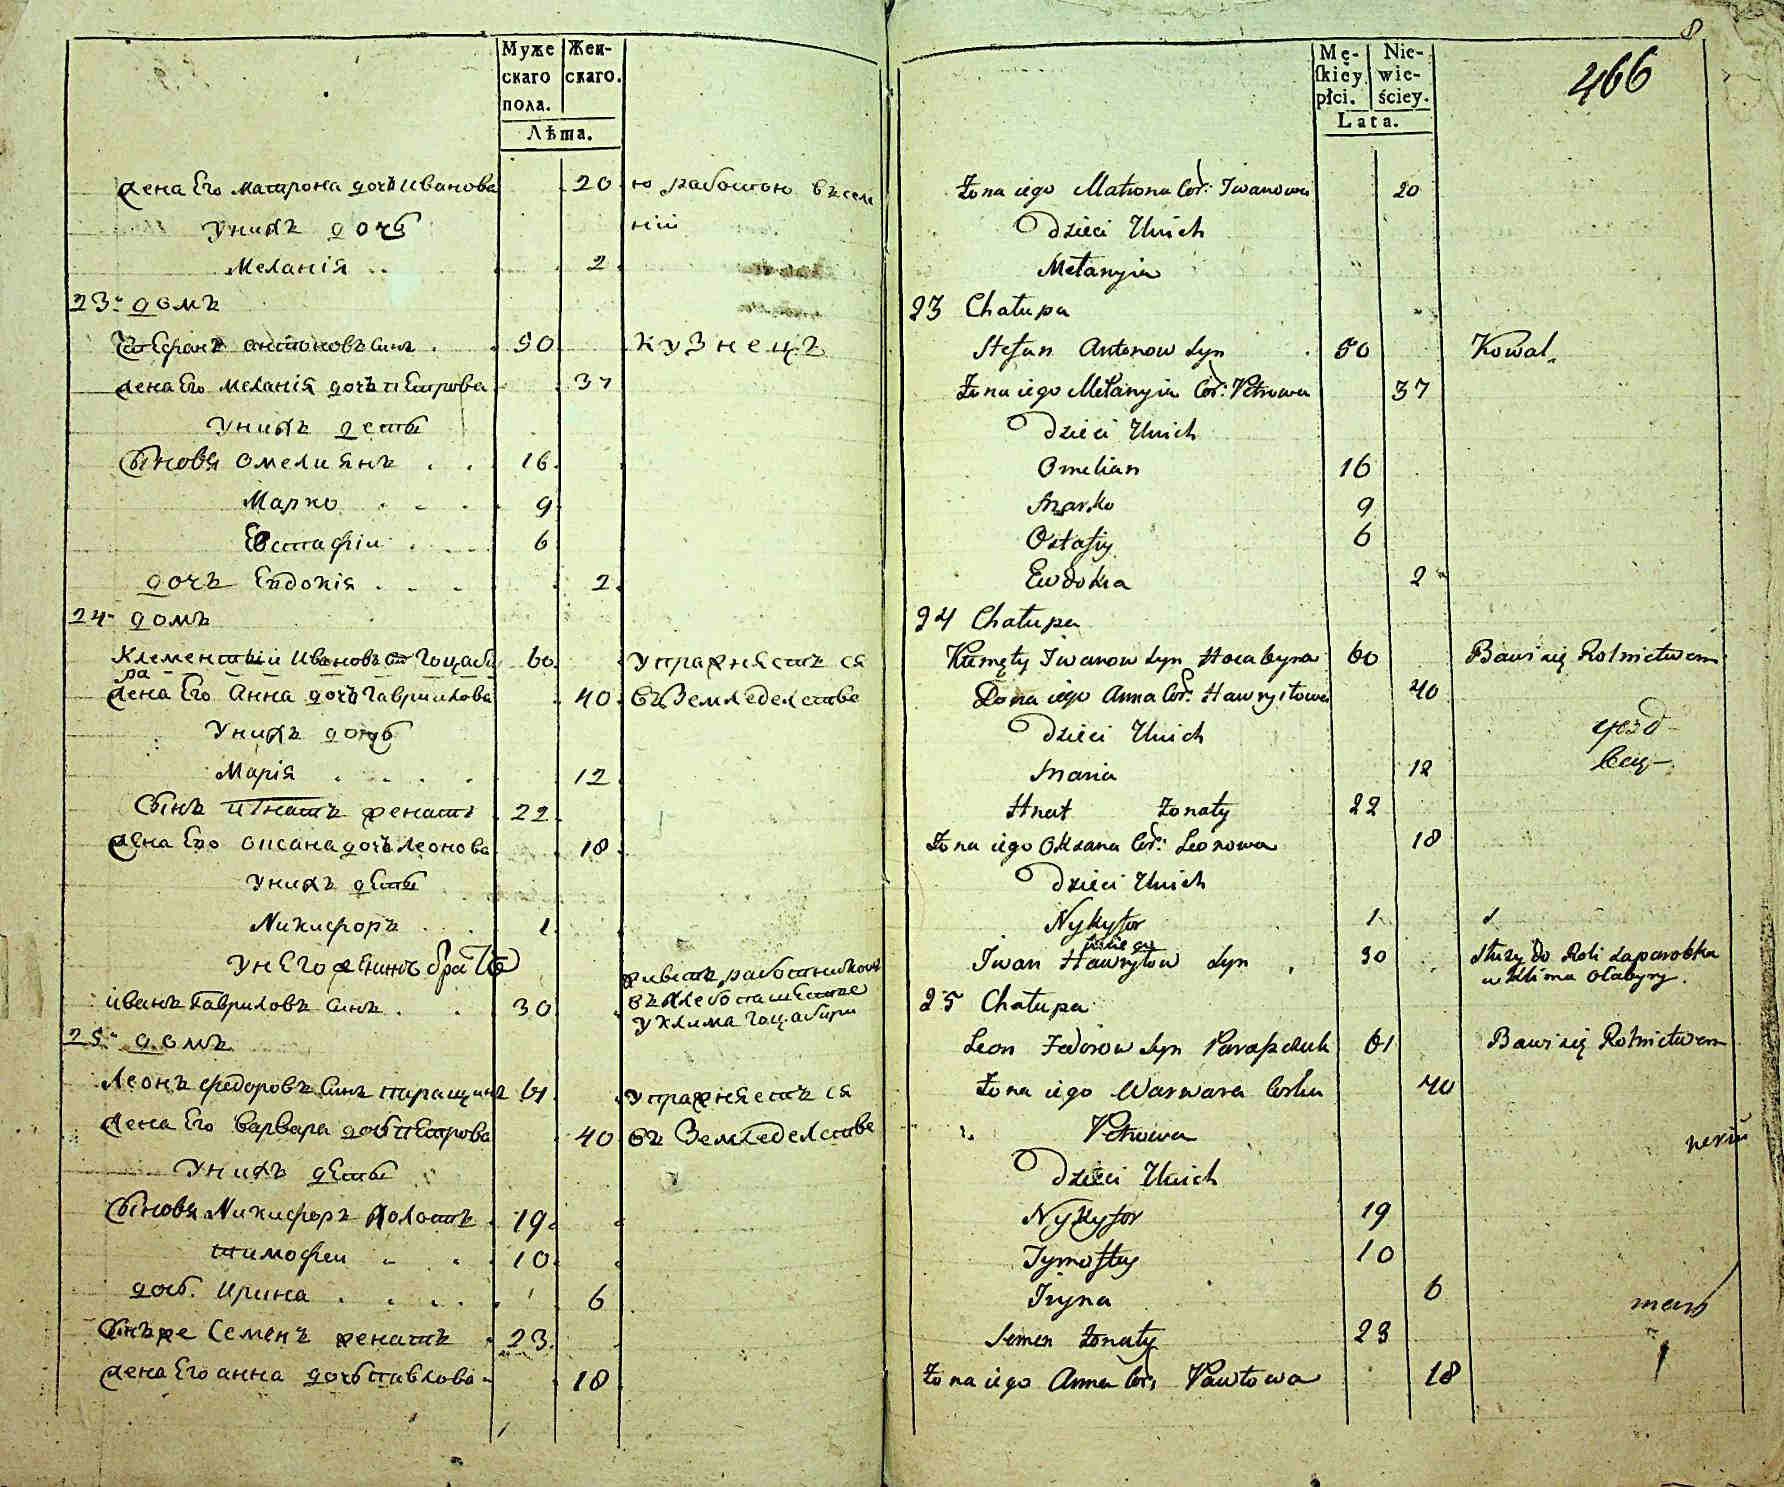 Муже Жен-
скаго скаго.
пола.
Лѣта.
жена Его матрона дочь иванова 20 ю работою въселе
унихъ дочь нiи
Меланiя 2
23. домъ
Стефанъ антоновъ синъ 50 кузнецъ
жена Его меланiя дочь пЕтрова 37
унихъ дети
Сыновя омелиянъ 16
Марко 9
Евстафiи 6
дочъ Евдокiя 2
24. домъ
Клементий Ивановъ Гоцаби 60 упражняетъ ся
ра
жена Его Анна дочь гаврилова 40 въ Земледелстве
унихъ дочь
Марiя 12
Сынъ игнатъ женатъ 22
жена Его оксана дочь Леонова 18
унихъ дЕти
Никифоръ 1
унЕго жЕнинъ братъ живетъ работникомъ
иванъ Гавриловъ синъ 30 въ хлебопашЕстве
у клима гоцабири
25. домъ
Леонъ федоровъ синъ 61 упражняетъ ся
жена Его варвара дочь пЕтрова 40 въ Земледелстве
унихъ дЕти
Сыновя Никифоръ холостъ 19
тимофеи 10
дочь. Ирина 6
Сынъ же Семенъ женатъ 23
жена Его анна дочь павлова 18
8
466
Mę- Nie-
skiey wie-
płci. ściey.
Lata.
Żona iego Matrona Cor: Iwanowa 20
Dzieci Unich
Mełanyia
23 Chałupa
Stefan Antonow Syn 50 Kowal
Żona iego Mełanyia Cor: Petrowa 37
Dzieci Unich
Omelian 16
Marko 9
Ostafiy 6
Ewdokia 2
24 Chałupa
Klemęty Iwanow Syn Hocabyra 60 Bawi się Rolnictwem
Żona iego Anna Cor: Hawryłowa 40
Dzieci Unich
Maria 12
Hnat Żonaty 22
Żona iego Oksana Cor: Leonowa 18
Dzieci Unich
Nykyfor 1
Iwan Hawryłow Syn 30 Służy do Roli za parobka
u Klima Ocabyry.
25 Chałupa
Leon Fedorow Syn Paraszczuk 61 Bawi się Rolnictwem
Żona iego Warwara Corka 40
Petrowa
Dzieci Unich
Nykyfor 19
Tymofiey 10
Iryna 6
Semen Żonaty 23
Żona iego Anna Cor: Pawłowa 18